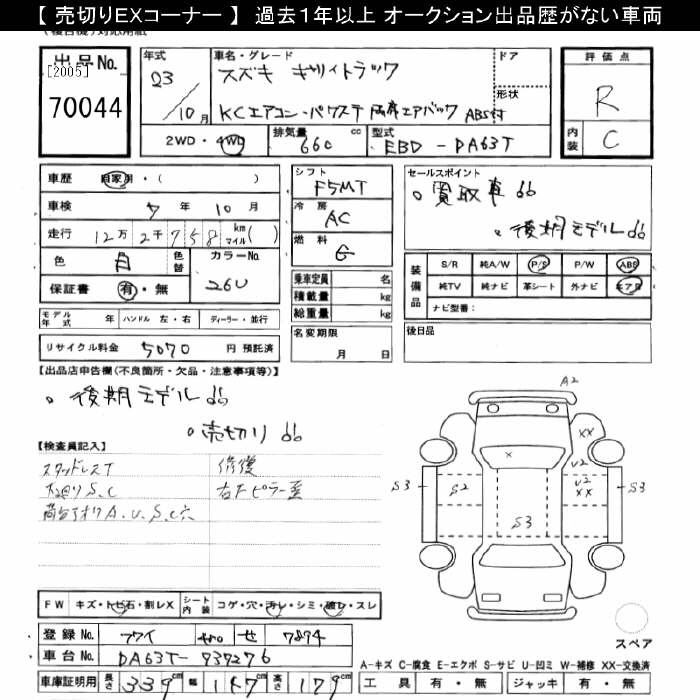 【 売切りEXコーナー 】 過去1年以上 オークション出品歴がない車両
出品No.
[2005]
70044
年式
23
10月
車名・グレード
スズキ キャリイトラック
KCエアコン・パワステ 両席エアバック ABS付
ドア
形状
2WD・4WD
排気量
660
cc
型式
EBD-DA63T
評価点
R
内装
C
車歴 自家用・( )
車検 年 10 月
走行 12万 2千 758 km マイル( )
色 白 色替
カラーNo.
26U
保証書 有・無
シフト
F5MT
冷房
AC
燃料
G
乗車定員 名
積載量 kg
総重量 kg
名変期限
月 日
セールスポイント
。買取車
。後期モデル
装備品
S/R 純A/W P/S P/W ABS
純TV 純ナビ 革シート 外ナビ エアB
ナビ型番:
後日品
モデル年式 年 ハンドル 左・右 ディーラー・並行
リサイクル料金 5070 円 預託済
【出品店申告欄(不良箇所・欠品・注意事項等)】
。後期モデル
。売切り
【検査員記入】
スタッドレスT
修復
S、C
右Fピラー
A、U、S、C、穴
FW キズ・トビ石・割レX シート内装 コゲ・穴・汚レ・シミ・破レ・スレ
A2
XX
U2
U2
XX
S3
S2
S3
S3
×
スペア
登録No. 480 せ 7894
車台No. DA63T-737276
車庫証明用 長さ 339cm 幅 147cm 高さ 179cm
A-キズ C-腐食 E-エクボ S-サビ U-凹ミ W-補修 XX-交換済
工具 有・無 ジャッキ 有・無